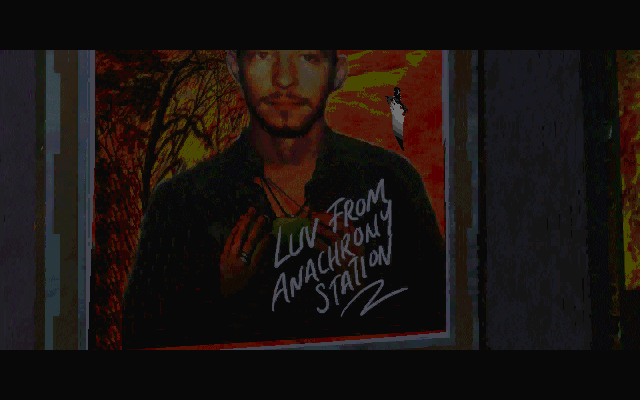 LUV FROM
ANACHRONY
STATION